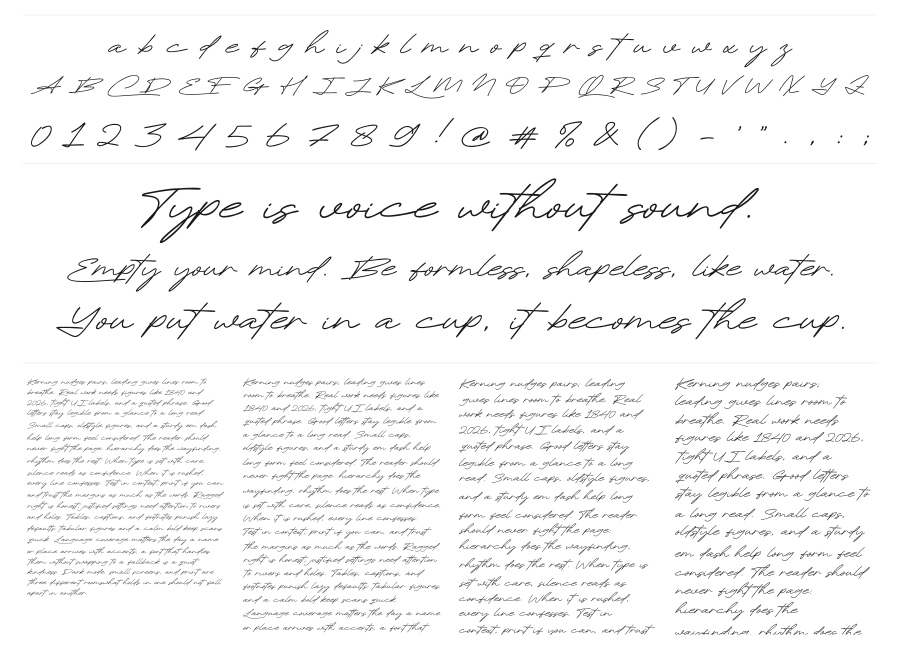 a b c d e f g h i j k l m n o p q r s t u v w x y z
A B C D E F G H I J K L M N O P Q R S T U V W X Y Z
0 1 2 3 4 5 6 7 8 9 ! @ # % & ( ) - ' " . , : ;
Type is voice without sound.
Empty your mind. Be formless, shapeless, like water.
You put water in a cup, it becomes the cup.
Kerning nudges pairs, leading gives lines room to
breathe. Real work needs figures like 1840 and
2026, tight U I labels, and a quoted phrase. Good
letters stay legible from a glance to a long read.
Small caps, oldstyle figures, and a sturdy em dash
help long form feel considered. The reader should
never fight the page; hierarchy does the wayfinding,
rhythm does the rest. When type is set with care,
silence reads as confidence. When it is rushed,
every line confesses. Test in context, print if you can,
and trust the margins as much as the words. Ragged
right is honest, justified settings need attention to rivers
and holes. Tables, captions, and footnotes punish lazy
defaults. Tabular figures and a calm bold keep scans
quick. Language coverage matters the day a name
or place arrives with accents, a font that handles
them without swapping to a fallback is a quiet
kindness. Dark mode, small screens, and print are
three different rooms; what holds in one should not fall
apart in another.
Kerning nudges pairs, leading gives lines
room to breathe. Real work needs figures like
1840 and 2026, tight U I labels, and a
quoted phrase. Good letters stay legible from
a glance to a long read. Small caps,
oldstyle figures, and a sturdy em dash help
long form feel considered. The reader should
never fight the page; hierarchy does the
wayfinding, rhythm does the rest. When type
is set with care, silence reads as confidence.
When it is rushed, every line confesses.
Test in context, print if you can, and trust
the margins as much as the words. Ragged
right is honest, justified settings need attention
to rivers and holes. Tables, captions, and
footnotes punish lazy defaults. Tabular figures
and a calm bold keep scans quick.
Language coverage matters the day a name
or place arrives with accents, a font that
Kerning nudges pairs, leading
gives lines room to breathe. Real
work needs figures like 1840 and
2026, tight U I labels, and a
quoted phrase. Good letters stay
legible from a glance to a long
read. Small caps, oldstyle figures,
and a sturdy em dash help long
form feel considered. The reader
should never fight the page;
hierarchy does the wayfinding,
rhythm does the rest. When type is
set with care, silence reads as
confidence. When it is rushed,
every line confesses. Test in
context, print if you can, and trust
Kerning nudges pairs,
leading gives lines room to
breathe. Real work needs
figures like 1840 and 2026,
tight U I labels, and a
quoted phrase. Good letters
stay legible from a glance to
a long read. Small caps,
oldstyle figures, and a sturdy
em dash help long form feel
considered. The reader should
never fight the page;
hierarchy does the
wayfinding, rhythm does the